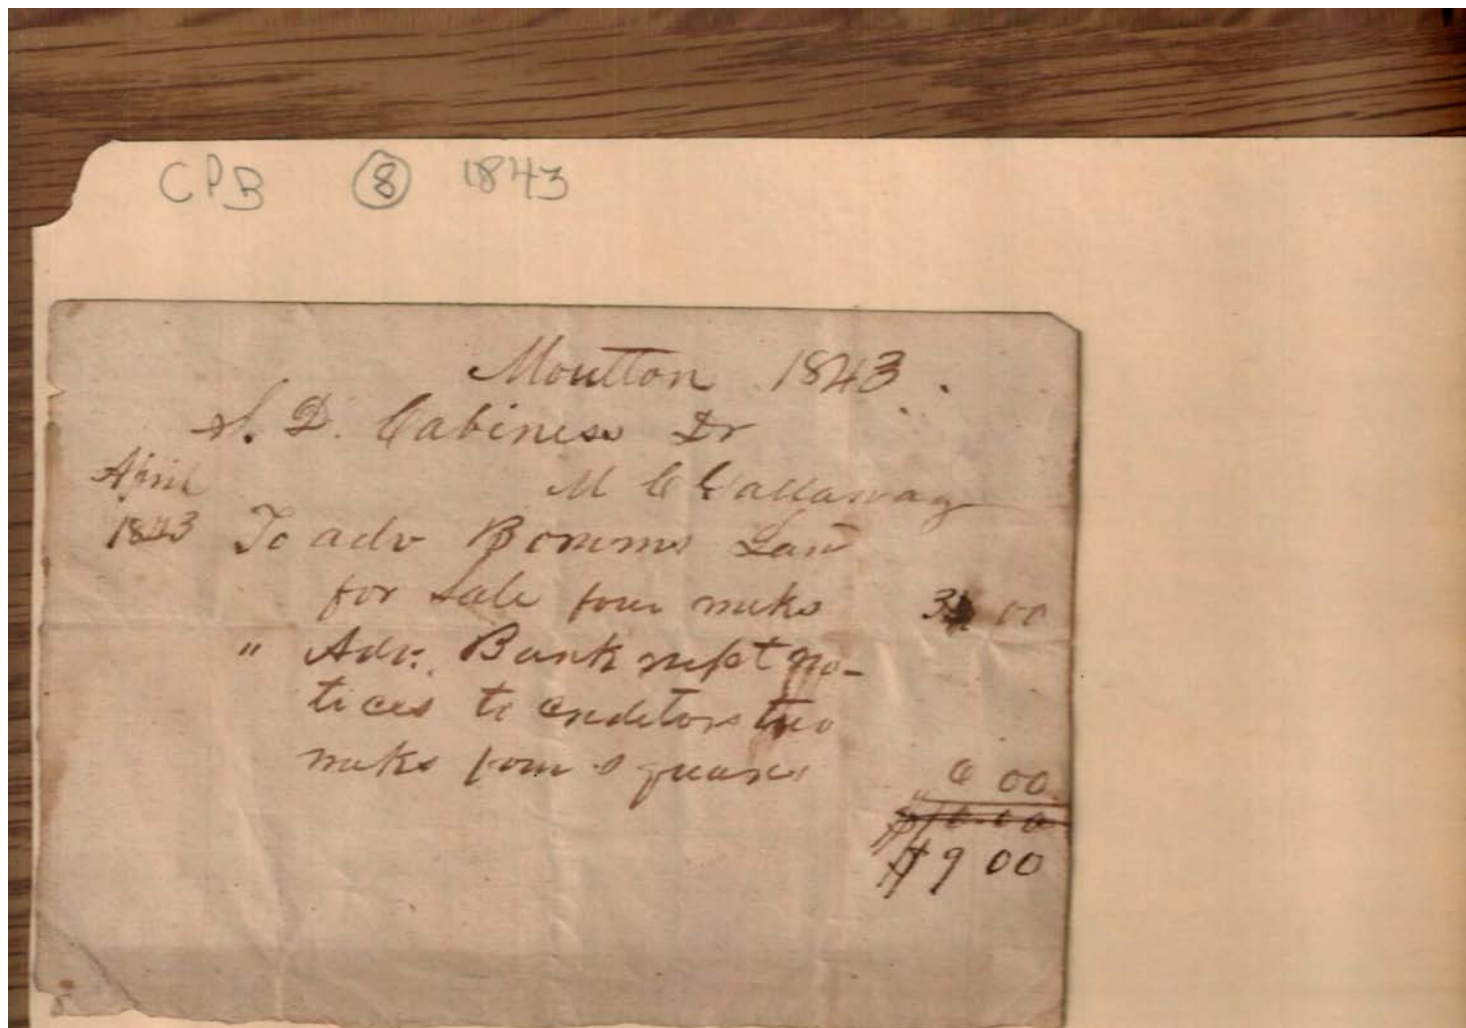 CPB 8 1843
Moulton 1843.
S. D. Cabiness Dr
April M C Gallaway
1843 To adv Law
for Sale four weeks 3 00
" Adv. Bankrupt no-
tices to creditors two
weeks four squares 6 00
$10.00
$9 00